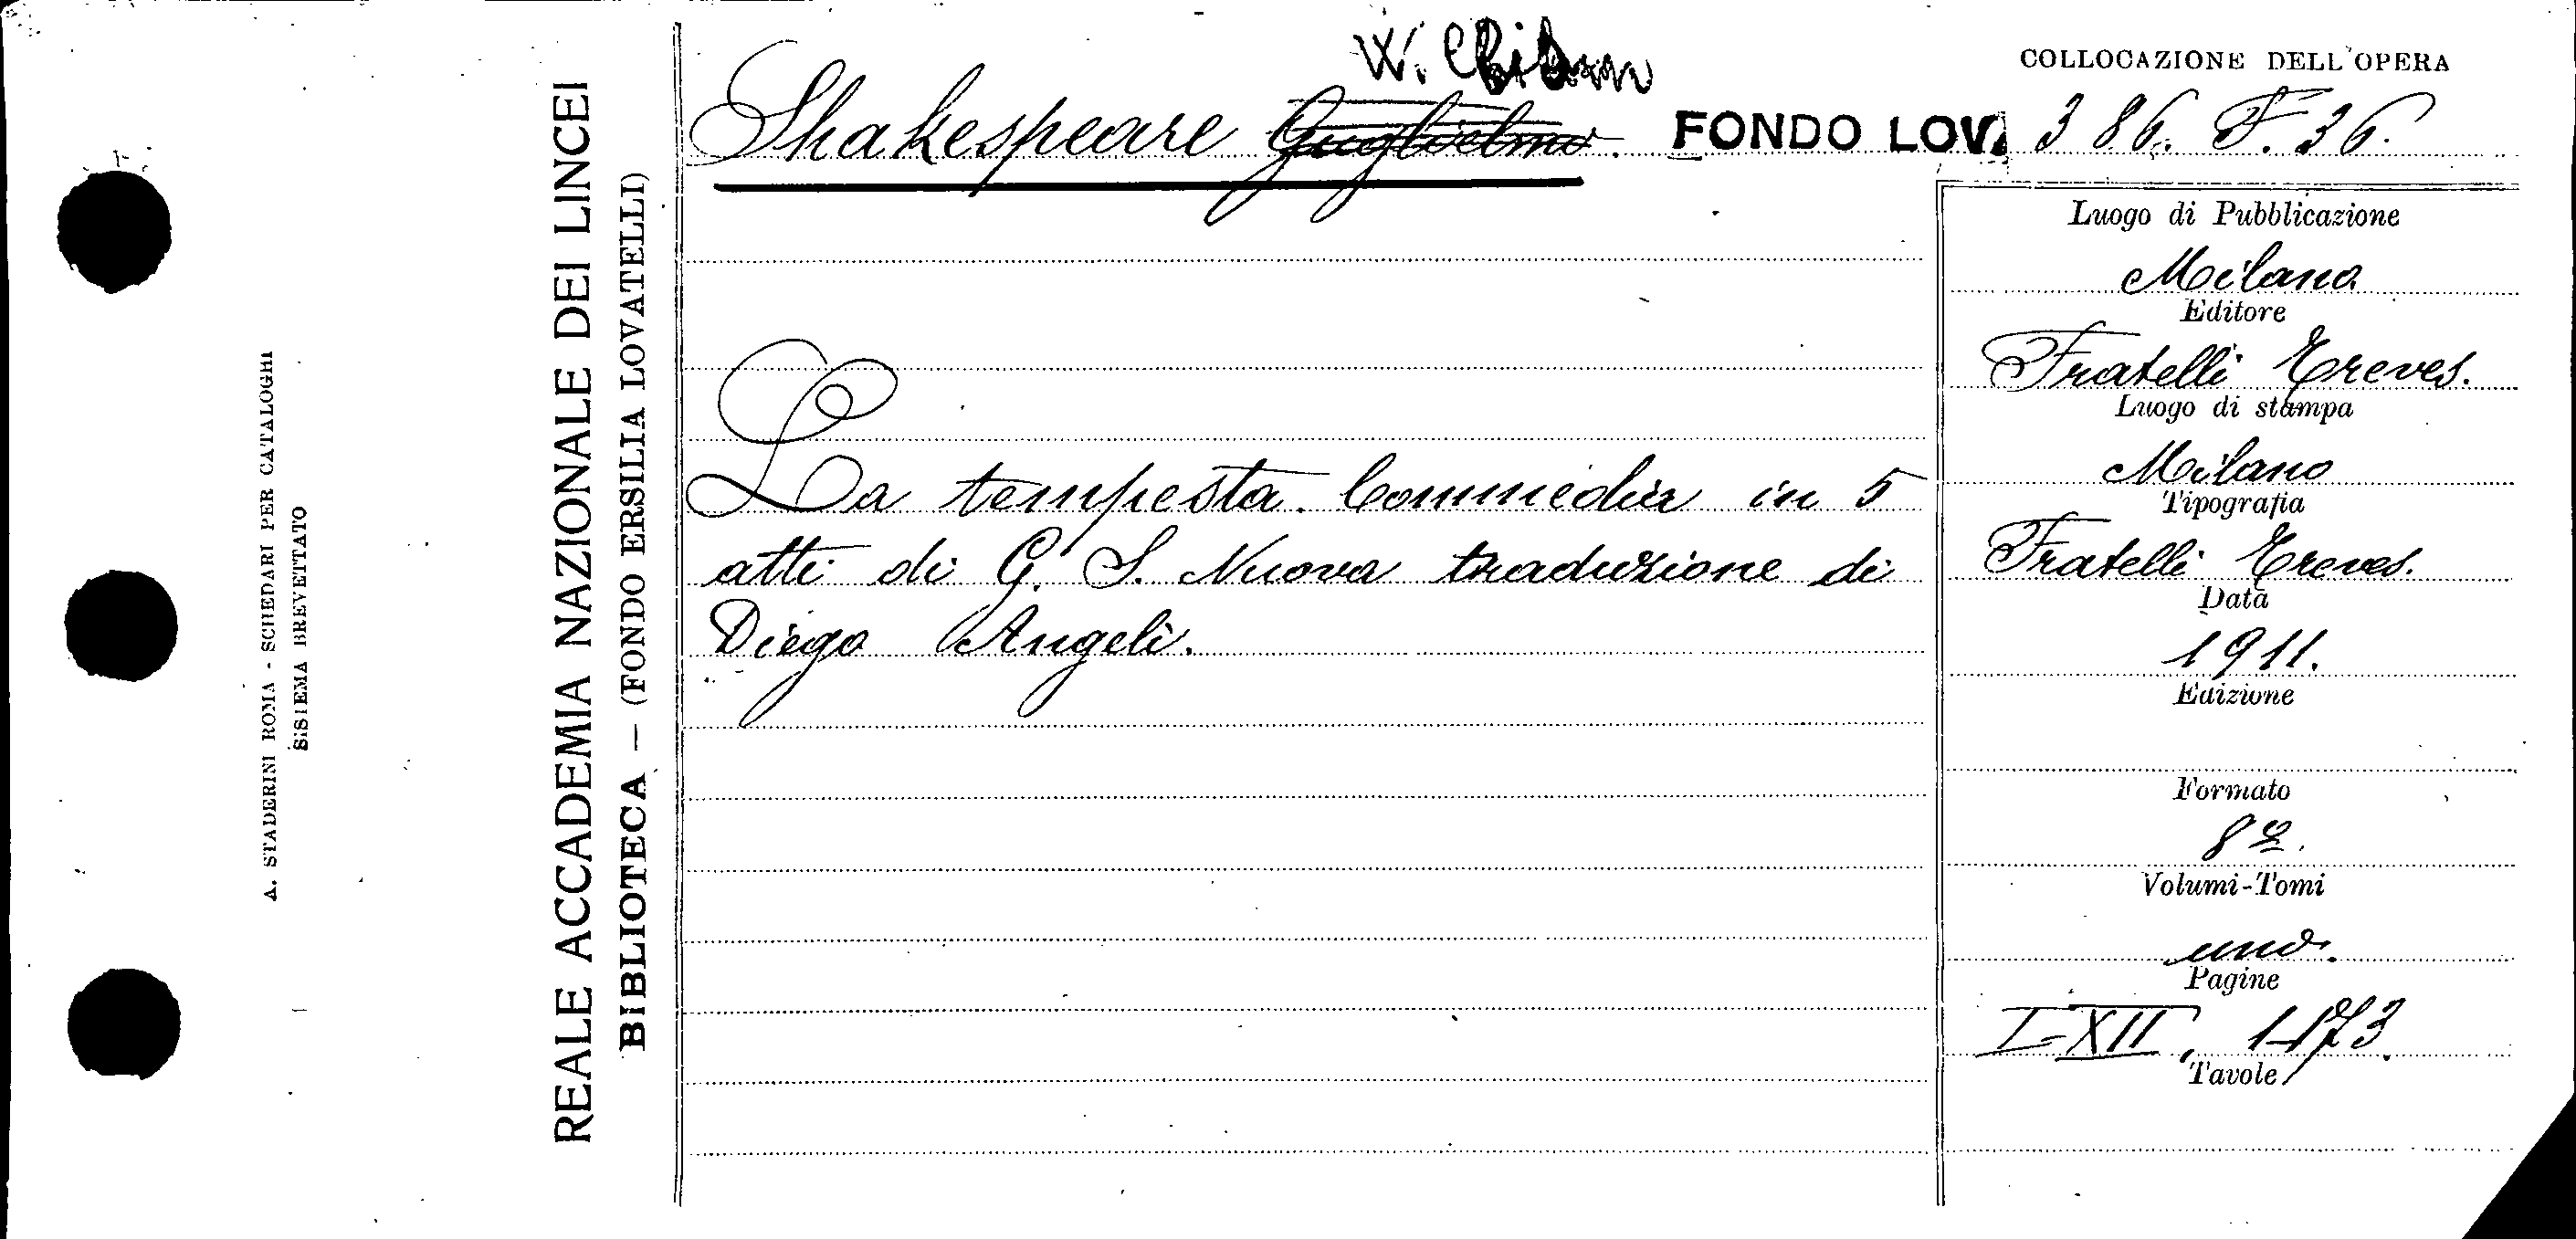 A. STADERINI ROMA - SCHEDARI PER CATALOGHI
SISTEMA BREVETTATO
REALE ACCADEMIA NAZIONALE DEI LINCEI
BIBLIOTECA — (FONDO ERSILIA LOVATELLI)
W.
Shakespeare Guglielmo.
La tempesta. Commedia in 5
atti di G. S. Nuova traduzione di
Diego Angeli.
COLLOCAZIONE DELL'OPERA
FONDO LOV. 386. F. 36.
Luogo di Pubblicazione
Milano
Editore
Fratelli Treves.
Luogo di stampa
Milano
Tipografia
Fratelli Treves.
Data
1911.
Edizione
Formato
8º.
Volumi-Tomi
uno.
Pagine
LXII, 173.
Tavole